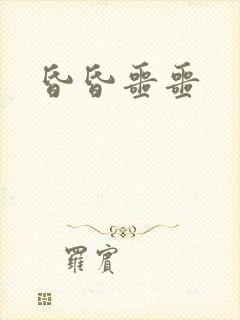 昏昏噩噩
羅賓